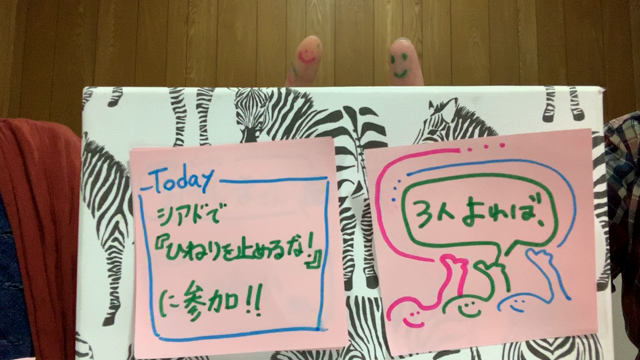 Today
シアドで
『ひねりを止めるな!』
に参加!!
3人よれば、